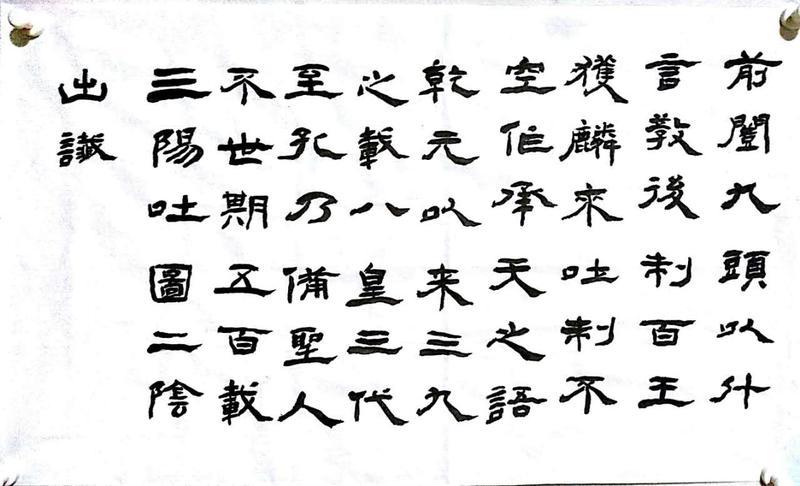 前闓九頭以什
言教後制百王
獲麟來吐制不
空作承天之語
乾元以来三九
之載八皇三代
至孔乃備聖人
不世期五百載
三陽吐圖二陰
出讖